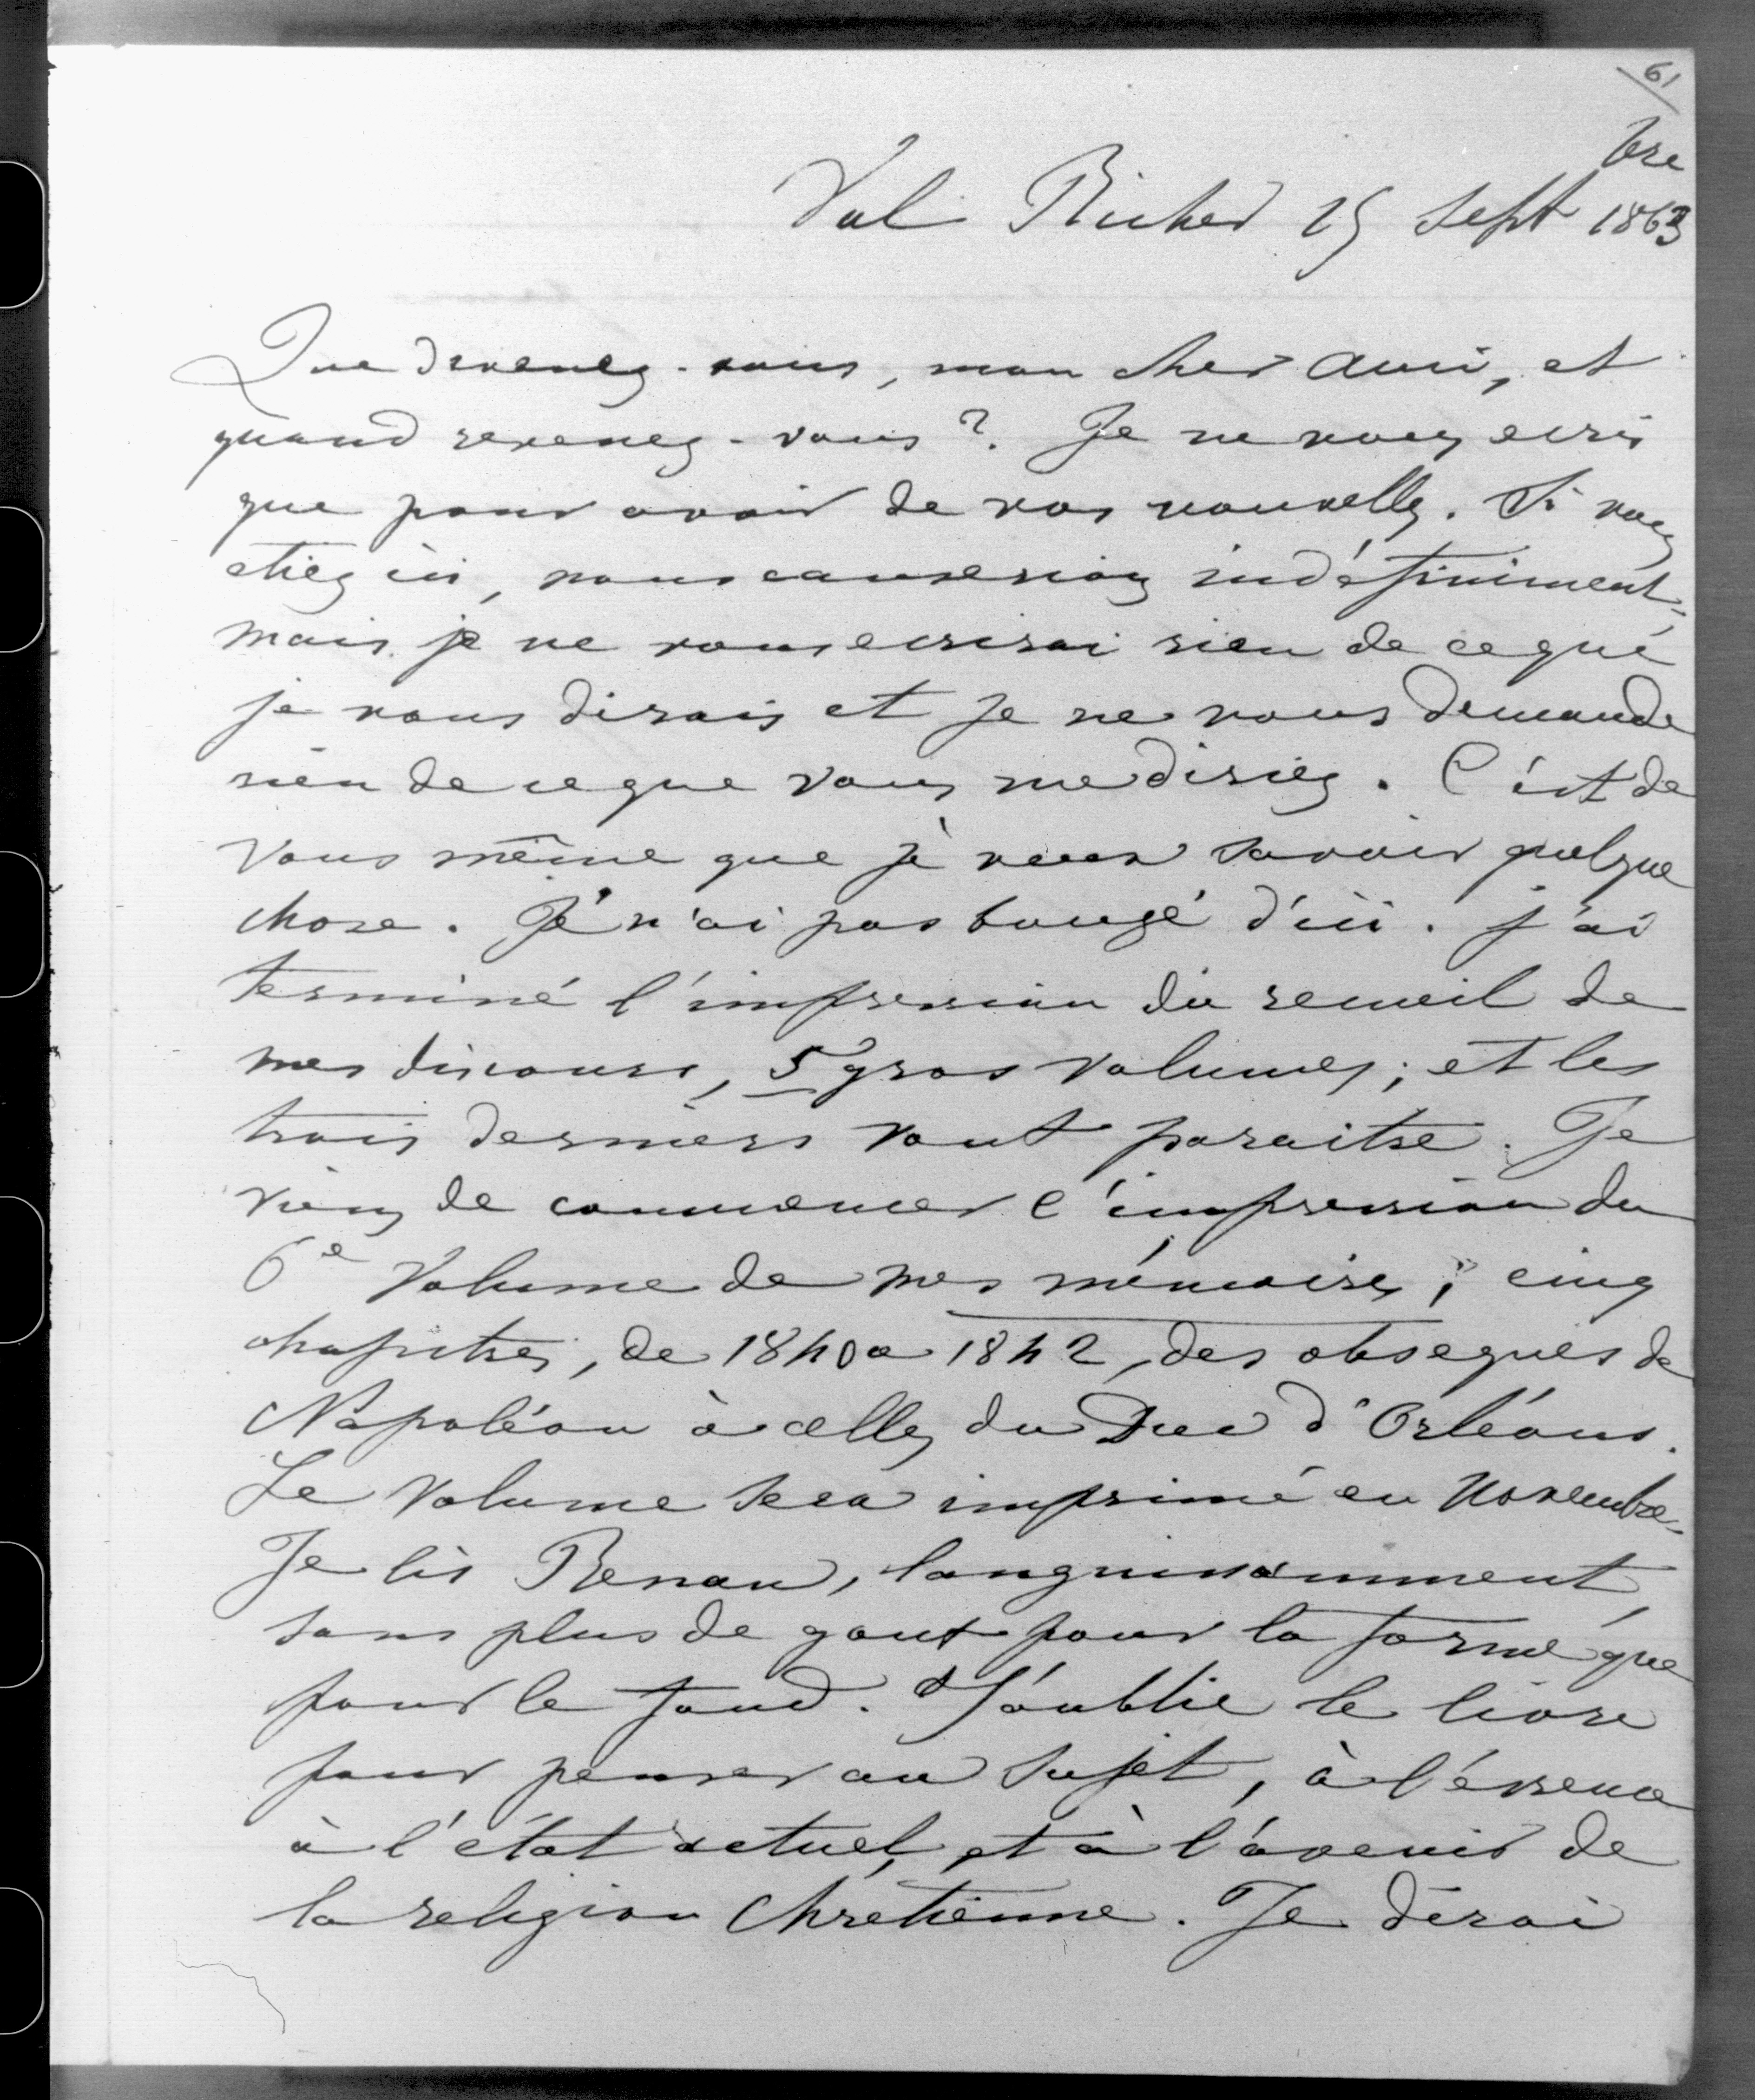 61
Val Richer 15 Sept bre 1863
Que devenez-vous, mon cher ami, et
quand revenez-vous ? Je ne vous ecris
que pour avoir de vos nouvelles. Si vous
etiez ici, nous causerions indéfiniment,
mais je ne vous ecrirai rien de ce que
je vous dirais et je ne vous demande
rien de ce que vous me diriez. C'est de
vous même que je veux savoir quelque
chose. Je n'ai pas bougé d'ici. J'ai
terminé l'impression du recueil de
mes discours, 5 gros volumes ; et les
trois derniers vont paraitre. Je
viens de commencer l'impression du
6e Volume de mes mémoires ; cinq
chapitres, de 1840 a 1842, des obseques de
Napoléon à celles du Duc d'Orléans.
Le Volume sera imprimé en Novembre.
Je lis Renan, languissamment,
sans plus de gout pour la forme que
pour le fond. J'oublie le livre
pour penser au sujet, à l'essence
à l'état actuel, et à l'avenir de
la religion Chrétienne. Je dirai